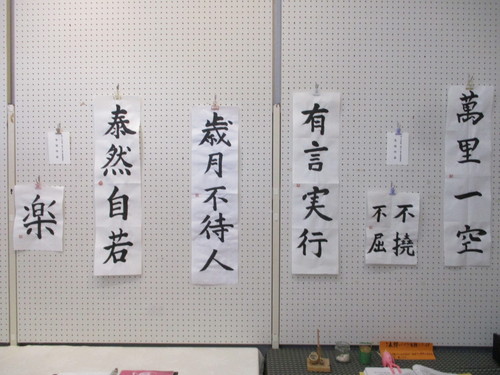 楽
泰然自若
歳月不待人
有言実行
不撓
不屈
萬里一空